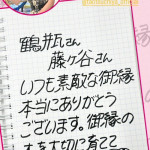 鶴瓶さん
藤ヶ谷さん
いつも素敵な御縁
本当にありがとう
ございます。御縁の
を大切に育てて